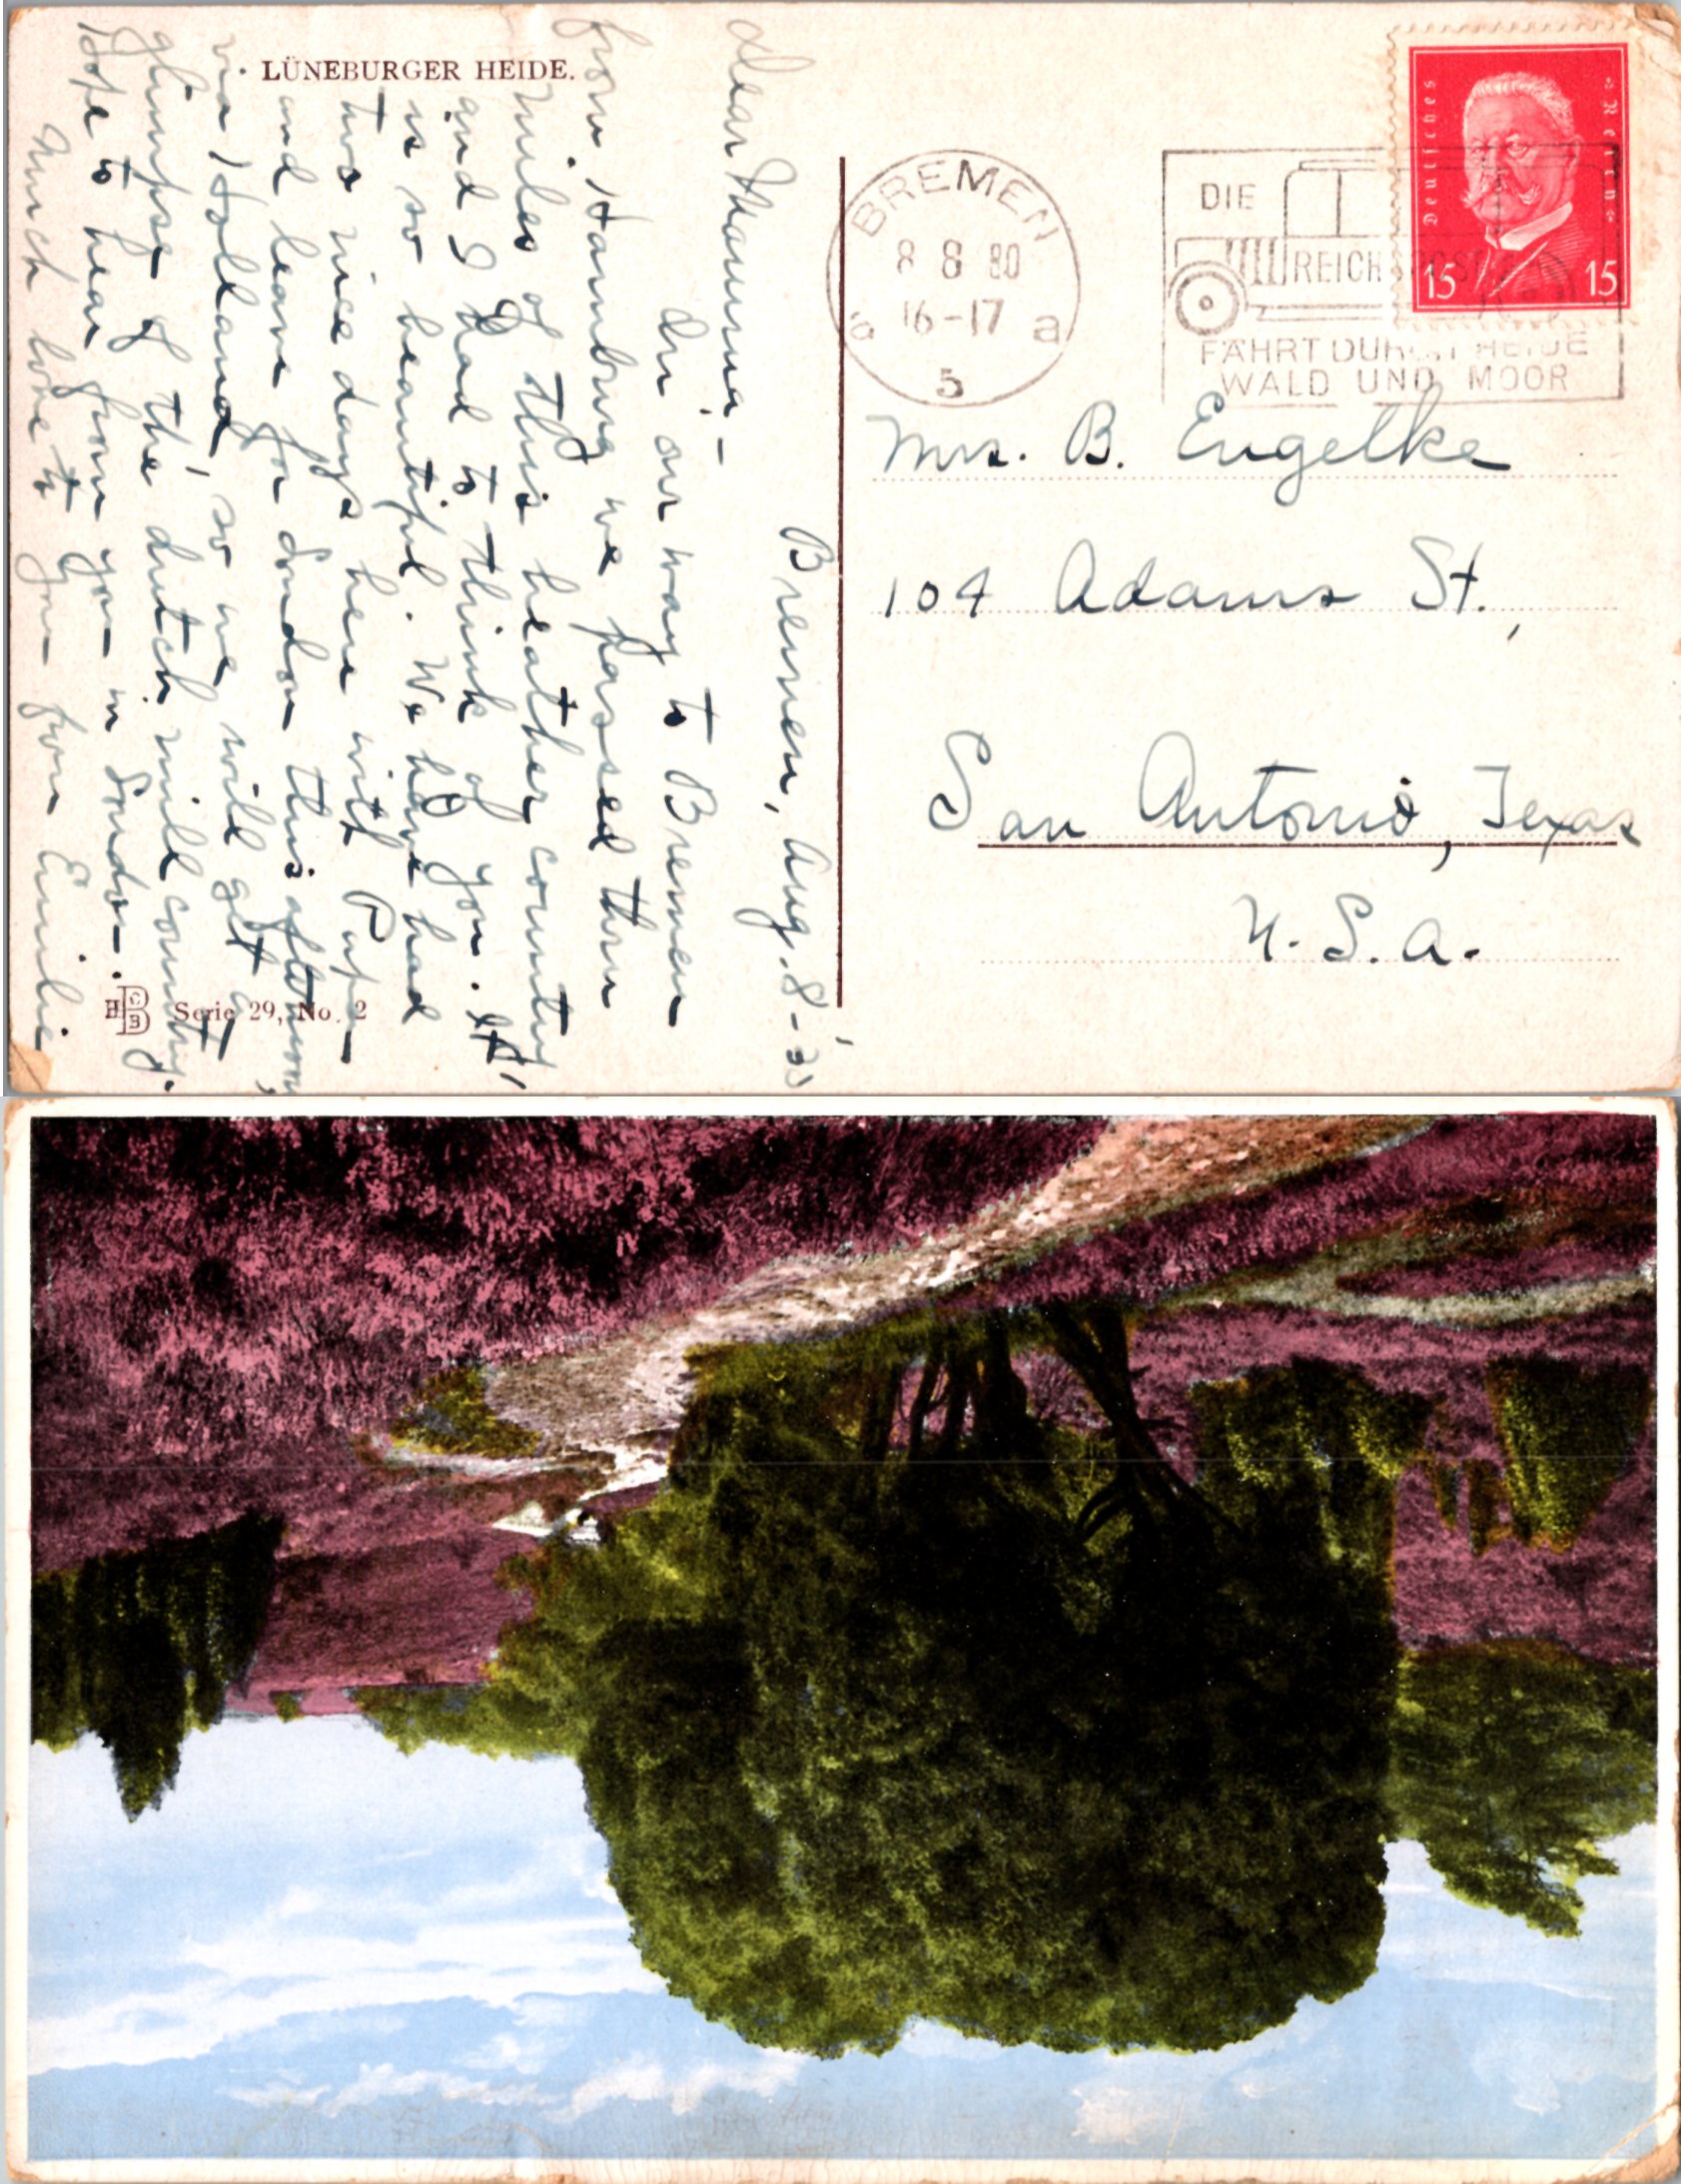 LÜNEBURGER HEIDE.
Bremen, Aug. 8-'30
Dear Mamma -
On our way to Bremen
from Hamburg we passed thru
miles of this heather country
and I had to think of you. It
is so beautiful. We have had
two nice days here with Papa
and leave for London this afternoon,
via Holland, so we will get a
glimpse of the dutch mill country.
Hope to hear from you in London.
Much love to you from Emilie
Serie 29, No. 2
BREMEN
8 8 30
16-17
5 a
DIE
REICHSPOST
FÄHRT DURCH HEIDE
WALD UND MOOR
Deutsches Reich
15 15
Mrs. B. Engelke
104 Adams St.,
San Antonio, Texas
U. S. A.